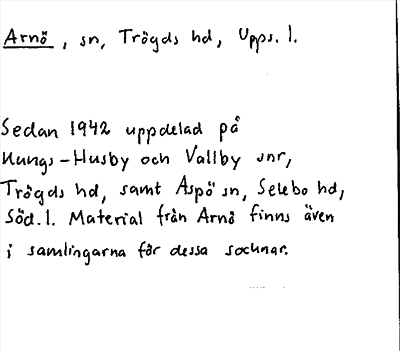 Arnö, sn, Trögds hd, Upps. l.
Sedan 1942 uppdelad på
Kungs-Husby och Vallby snr,
Trögds hd, samt Aspö sn, Selebo hd,
Söd. l. Material från Arnö finns även
i samlingarna för dessa socknar.